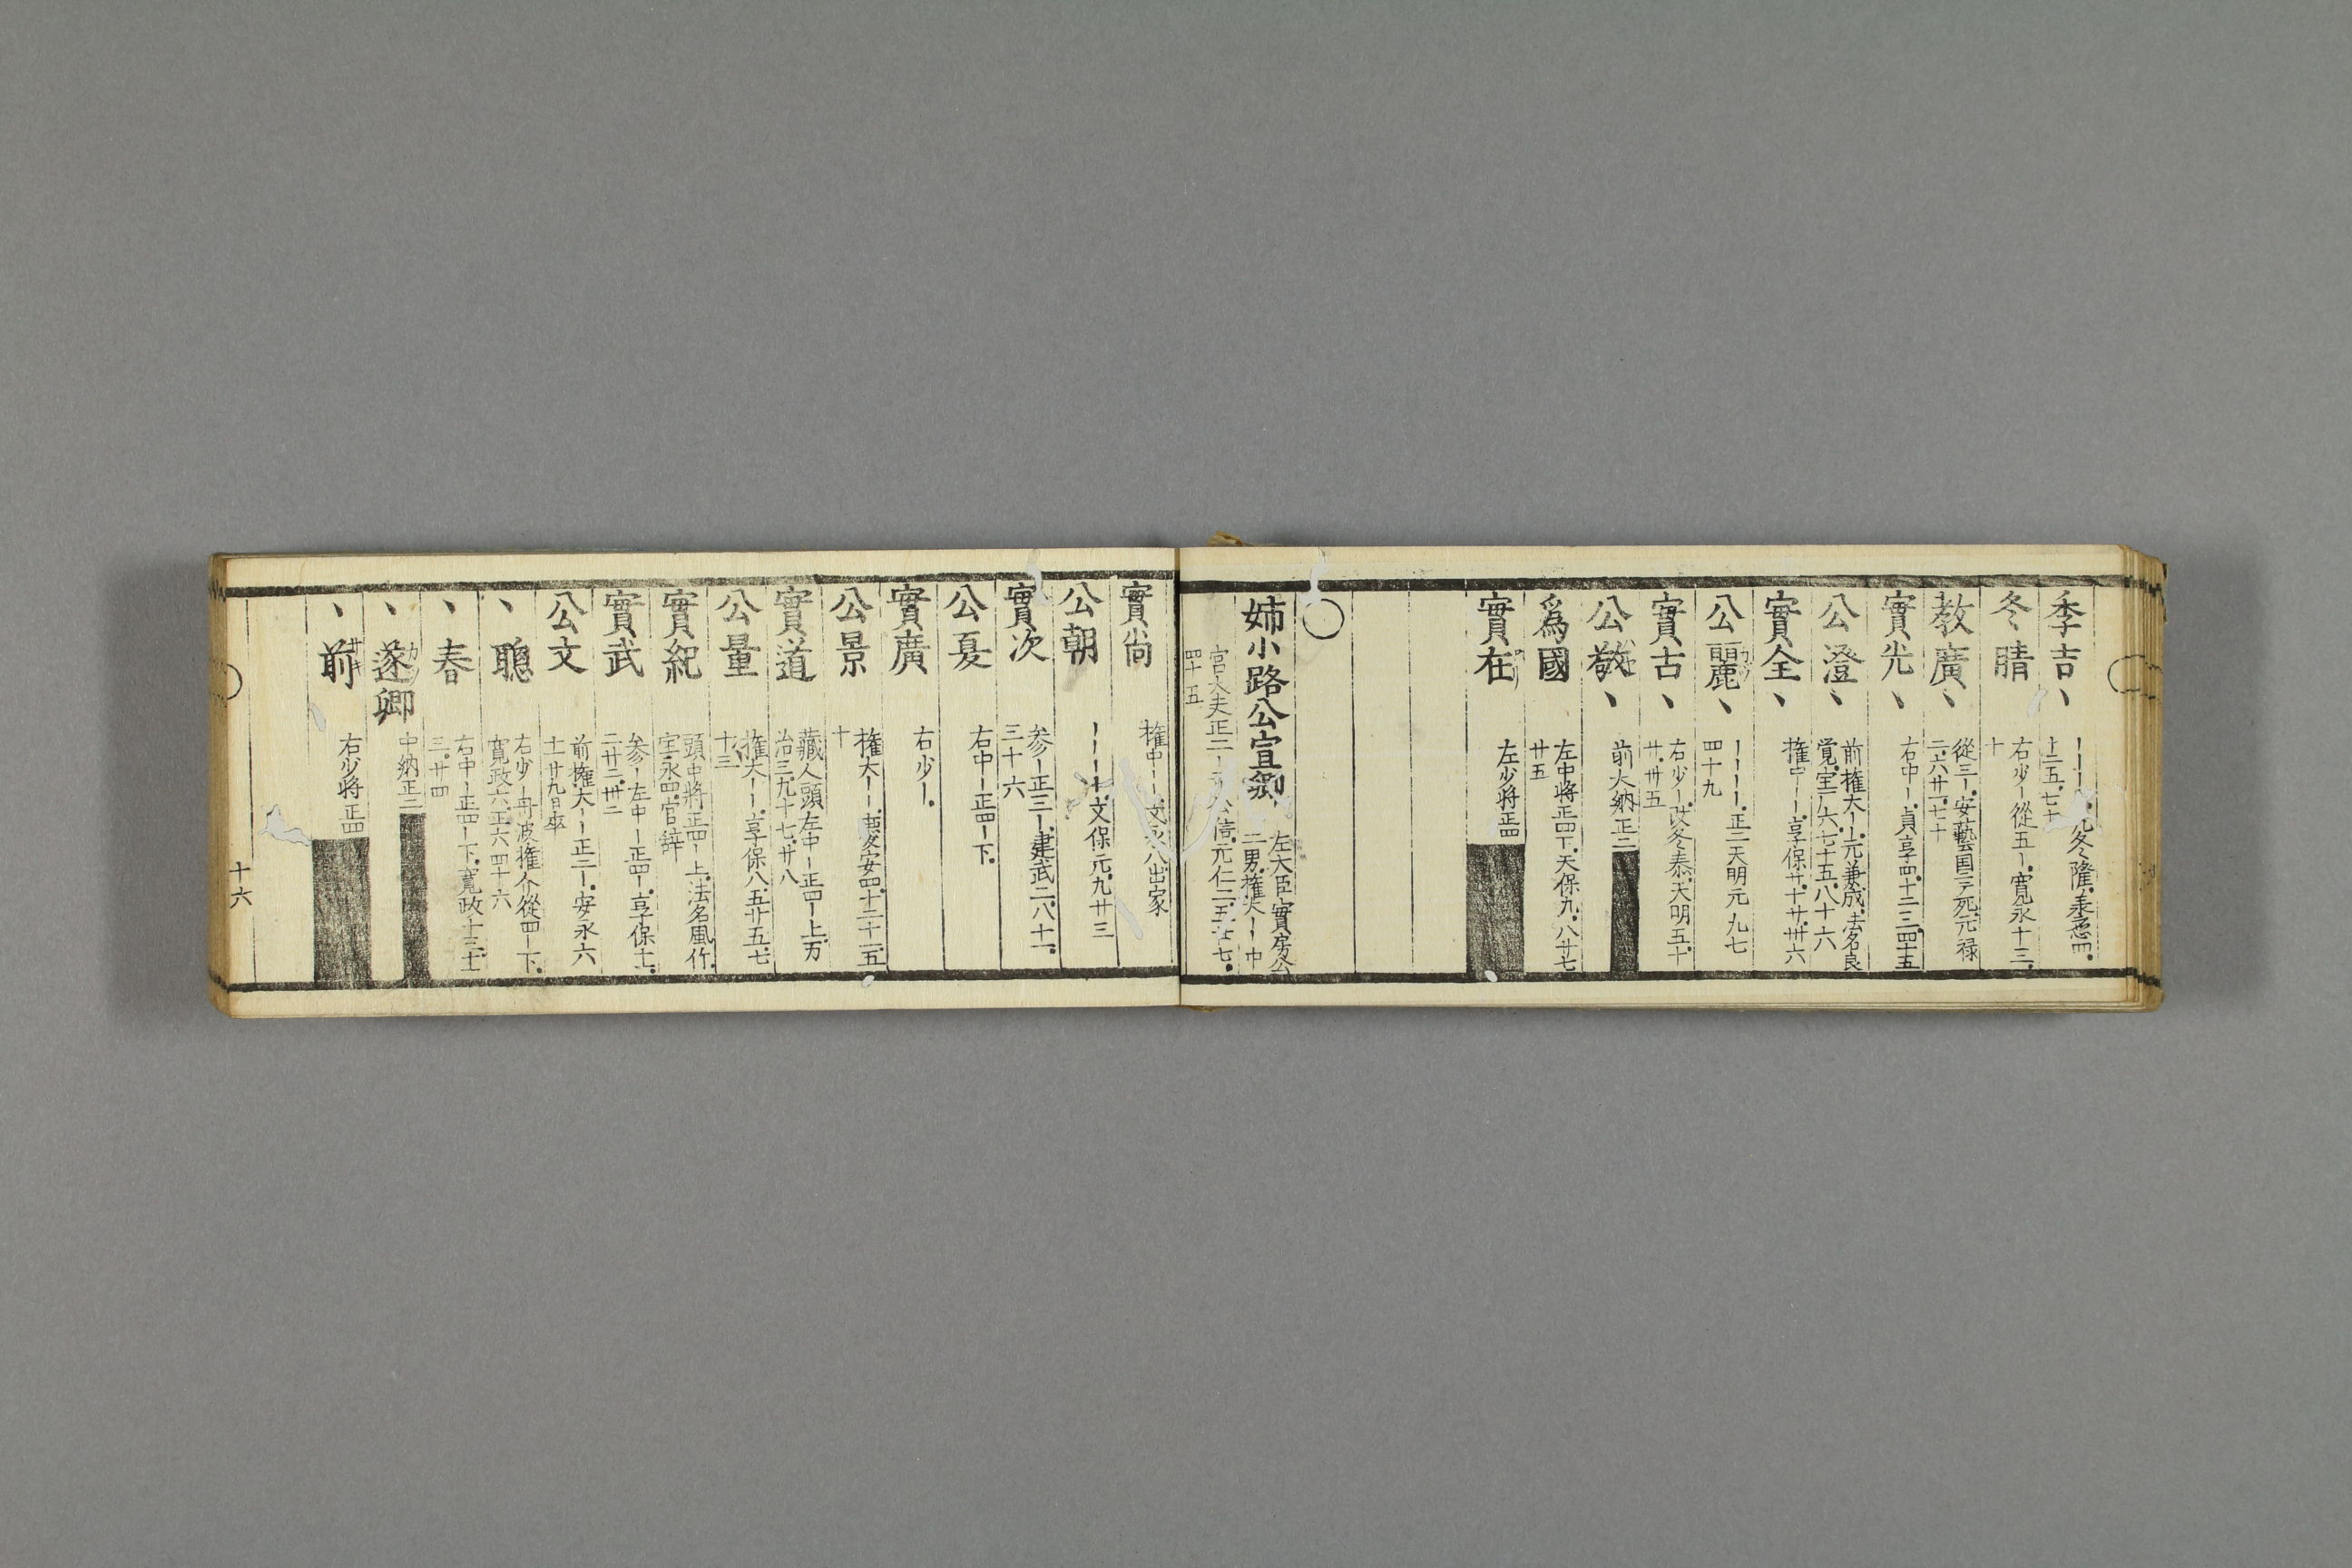 季吉、
冬隆
上二五七十
冬晴
右少ー從五ー寛永十三
十
教廣、
從三ー安藝国ニテ死元禄
二六廿一七十
實光、
右中ー貞享四十二三四十五
公澄、
前權大ー上元兼成法名良
覺宝ー六七十五八十六
實全、
權中ーー享保廿十廿卅六
公麗、
ーーーー正二天明元九七
四十九
實古、
右少ー改冬泰天明五十
廿卅五
公敬、
前大納正二
爲國
左中將正四下天保九八廿七
廿五
實在
左少將正四
〇
姉小路公宣
左大臣實房公
二男權大ー中
宮大夫正二
四十五
實尚
權中ー
出家
公朝
文保元九廿三
實次
参ー正三ー建武二八十一
三十六
公夏
右中ー正四ー下
實廣
右少ー
公景
權大ーー慶安四十二十一五
十
實道
藏人頭左中ー正四ー上万
治三九十七廿八
公量
權大ーー享保八五廿五七
十三
實紀
頭中將正四ー上法名風竹
宝永四官辞
實武
参ー左中ー正四ー享保十一
二廿二卅二
公文
前權大ーー正二ー安永六
十一廿九日卒
、聰
右少ー丹波權介從四ー下
寛政六正六四十六
、春
右中ー正四ー下寛政十三十一
三廿四
、遂卿
中納正二
、前
右少將正四
十六